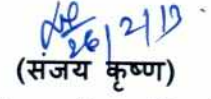 26/2/19
(संजय कृष्ण)